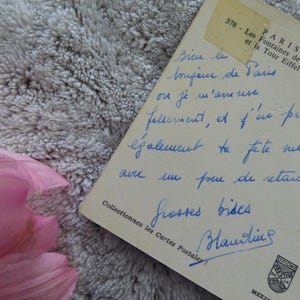 PARIS
378 - Les Fontaines de
et la Tour Eiffel
Bien le
bonjour de Paris
où je m'amuse
follement, et j'en pro
également ta fête
avec un peu de retard
Grosses bises
Blandine
Collectionnez les Cartes Postales